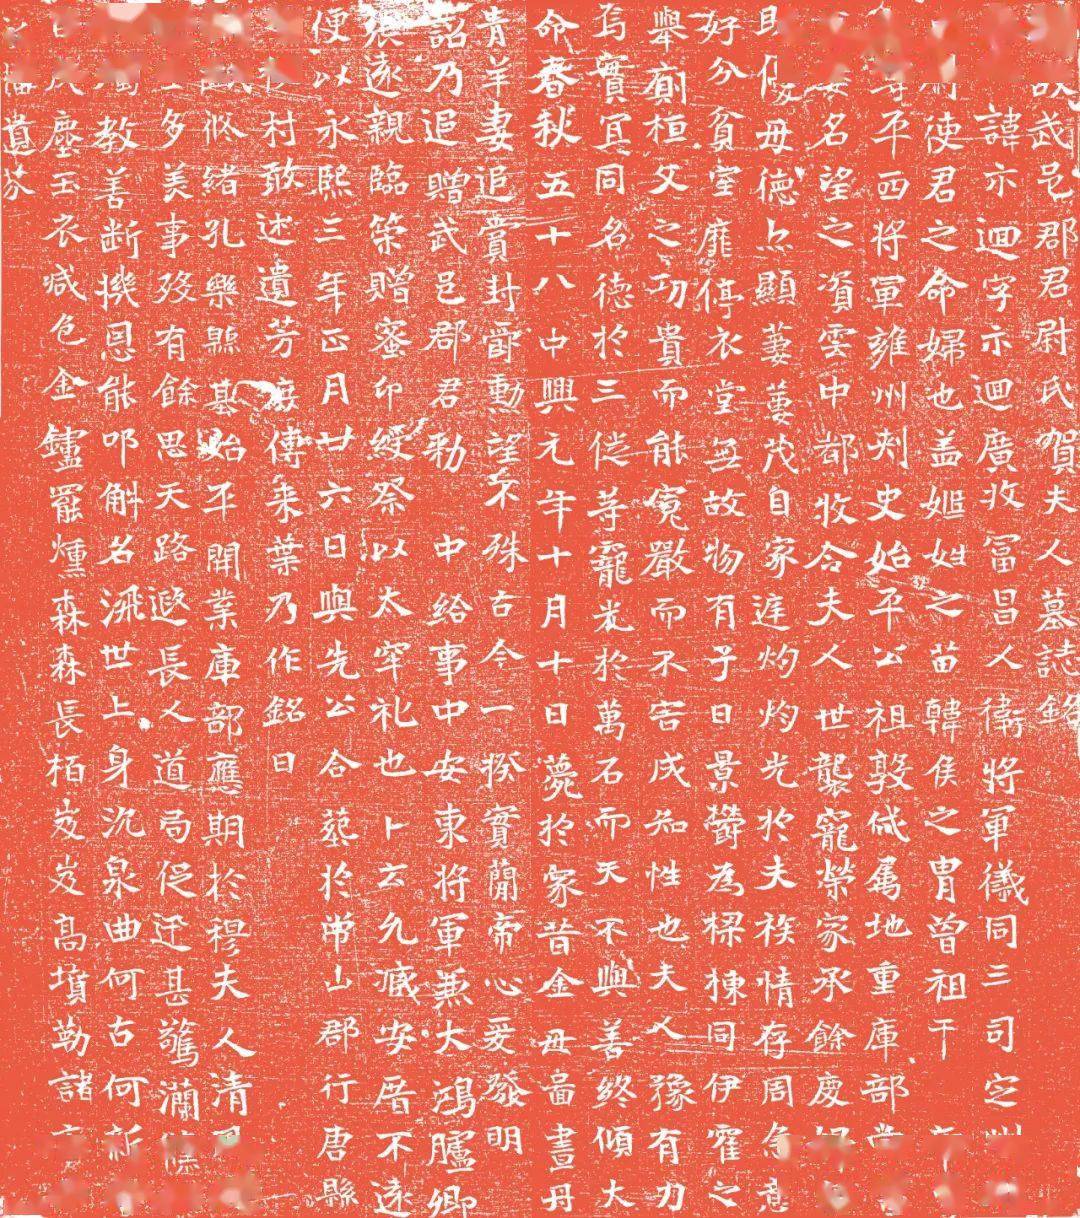 故武邑郡君尉氏賀夫人墓誌銘
諱示迴字示迴廣牧冨昌人衞將軍儀同三司定州
刺使君之命婦也盖姬姓之苗韓侯之胄曾祖干
平西將軍雍州刺史始平公祖敦咸屬地重庫部
名望之資雲中都牧合夫人世襲寵榮家承餘慶
毋德点顯萋萋茂自家庭灼灼光於夫族情存周急意
好分貧室靡停衣堂無故物有子曰景欝為樑棟同伊霍之
舉廟桓父之功貴而能寬嚴而不害成知性也夫人豫有力
焉實冥同名德於三徙荨寵光於萬石而天不與善終傾大
命春秋五十八中興元年十月十日薨於家昔金毋啚晝丹
青羊妻追賞封爵勲望不殊古今一揆實蕳帝心爰發明
詔乃追贈武邑郡君勑 中給事中安東將軍兼大鴻臚卿
張遂親臨策贈蜜印綬祭以太罕礼也卜云允臧安厝不遠
便以永熙三年正月廿六日與先公合葬於常山郡行唐縣
村敢述遺芳庶傳来葉乃作銘曰
攸緒孔樂縣基始平開業庫部應期於穆夫人清
多美事叐有餘思天路遐長人道局促迁甚驚瀾
教善断機恩能叩觧名流世上身沉泉曲何古何新
塵玉衣咸色金鑪罷燻森森長栢岌岌高墳勒諸
遺芬